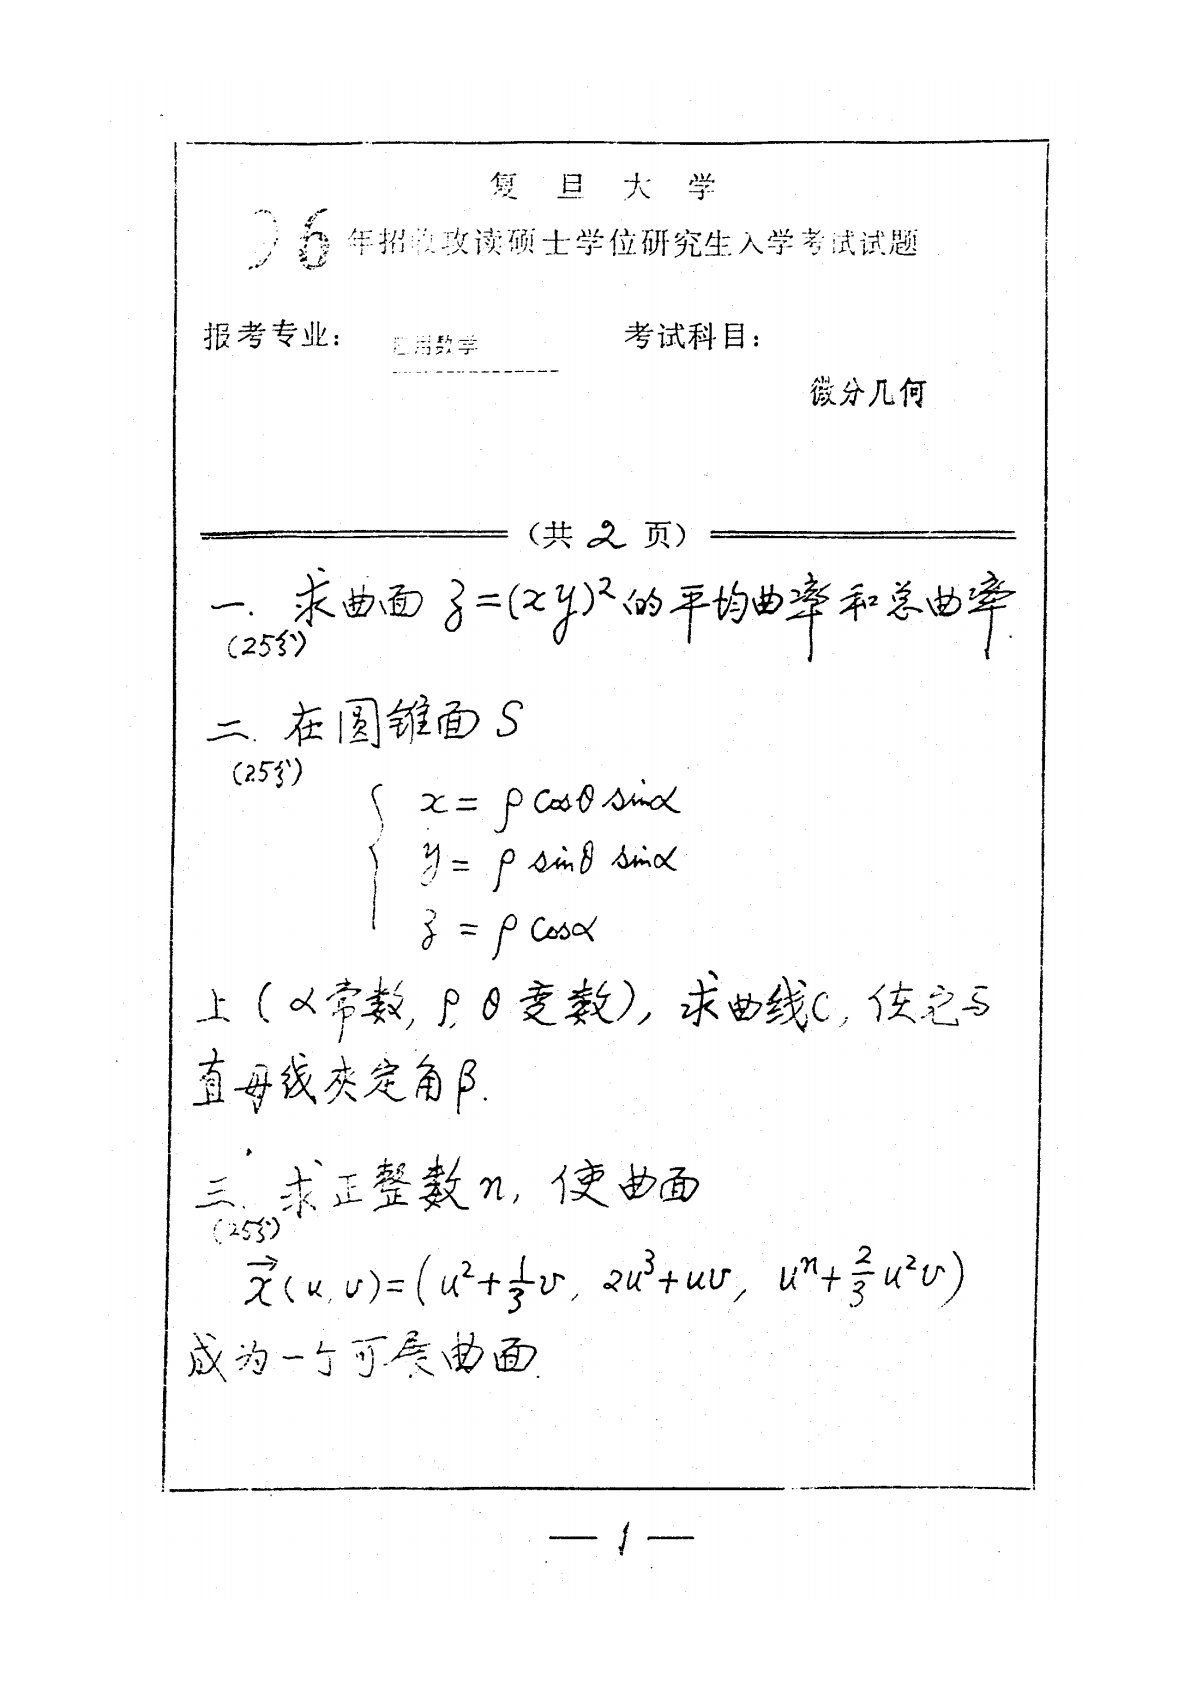 复旦大学
96年招收攻读硕士学位研究生入学考试试题
报考专业: 应用数学 考试科目:
微分几何
(共2页)
一. 求曲面 z=(xy)²的平均曲率和总曲率.
(25分)
二. 在圆锥面 S
(25分)
x = ρ cosθ sinα
y = ρ sinθ sinα
z = ρ cosα
上(α常数, ρ, θ变数), 求曲线C, 使它与
直母线夹定角β.
三. 求正整数n, 使曲面
(25分)
x⃗(u,v)=(u²+⅓v, 2u³+uv, uⁿ+⅔u²v)
成为一个可展曲面.
— 1 —